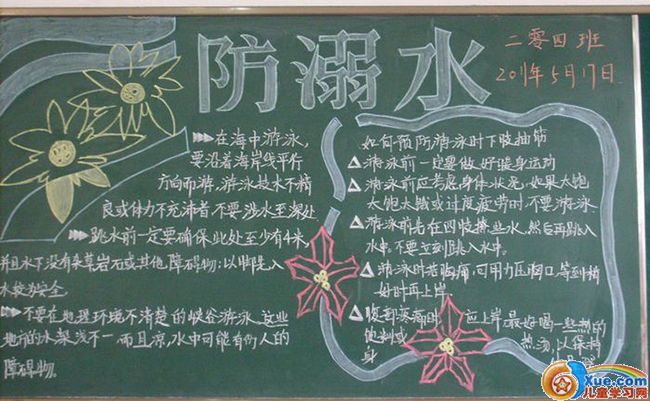 防溺水
二零四班
2011年5月17日
在海中游泳,
要沿着海岸线平行
方向而游,游泳技术不精
良或体力不充沛者,不要涉水至深处
跳水前一定要确保此处至少有4米,
并且水下没有杂草岩石或其他障碍物;以脚先入
水较为安全
不要在地理环境不清楚的峡谷游泳,这些
地方的水深浅不一,而且凉,水中可能有伤人的
障碍物。
如何预防游泳时下肢抽筋
游泳前一定要做好暖身运动
游泳前应考虑身体状况,如果太饱
太饿或过度疲劳时,不要游泳
游泳前先在四肢撩些水,然后再跳入
水中,不要立刻跳入水中。
游泳时若胸痛,可用力压胸口,等到稍
好时再上岸
腹部疼痛时 应上岸,最好喝一些热的
饮料或 热汤,以保持
身
Xue.com
儿童学习网